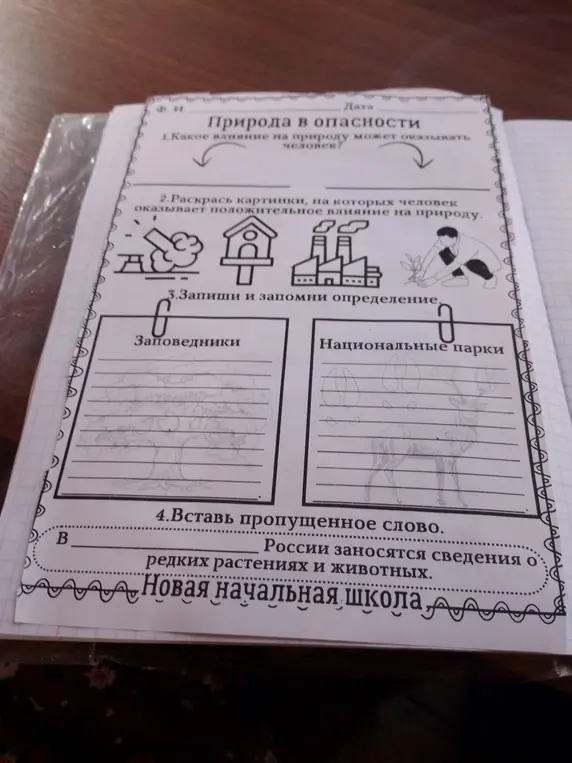 Ф. И. Дата
Природа в опасности
1.Какое влияние на природу может оказывать
человек?
2.Раскрась картинки, на которых человек
оказывает положительное влияние на природу.
3.Запиши и запомни определение.
Заповедники
Национальные парки
4.Вставь пропущенное слово.
В России заносятся сведения о
редких растениях и животных.
Новая начальная школа